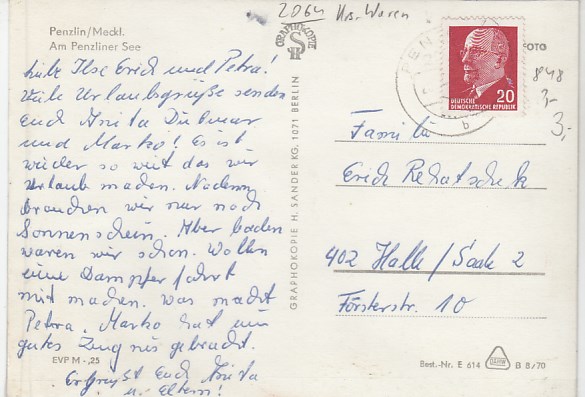 2064 Krs. Waren
Penzlin/Meckl.
Am Penzliner See
GRAPHOKOPIE
H S
FOTO
liebe Ilse Erich und Petra!
Viele Urlaubsgrüße senden
Euch Anita Dietmar
und Marko! Es ist
wieder so weit das wir
Urlaub machen. Nochem
brauchen wir nur noch
Sonnenschein. Aber baden
waren wir schon. Wollen
eine Dampferfahrt
mit machen. Was macht
Petra. Marko hat ein
gutes Zeugnis gebracht.
Es grüßt Euch Anita
u. Eltern!
EVP M -,25
GRAPHOKOPIE H. SANDER KG, 1071 BERLIN
PEN
b
DEUTSCHE
DEMOKRATISCHE REPUBLIK
20
848
3,-
3,-
Familie
Erich
402 Halle/Saale 2
Försterstr. 10
Best.-Nr. E 614
B 8/70